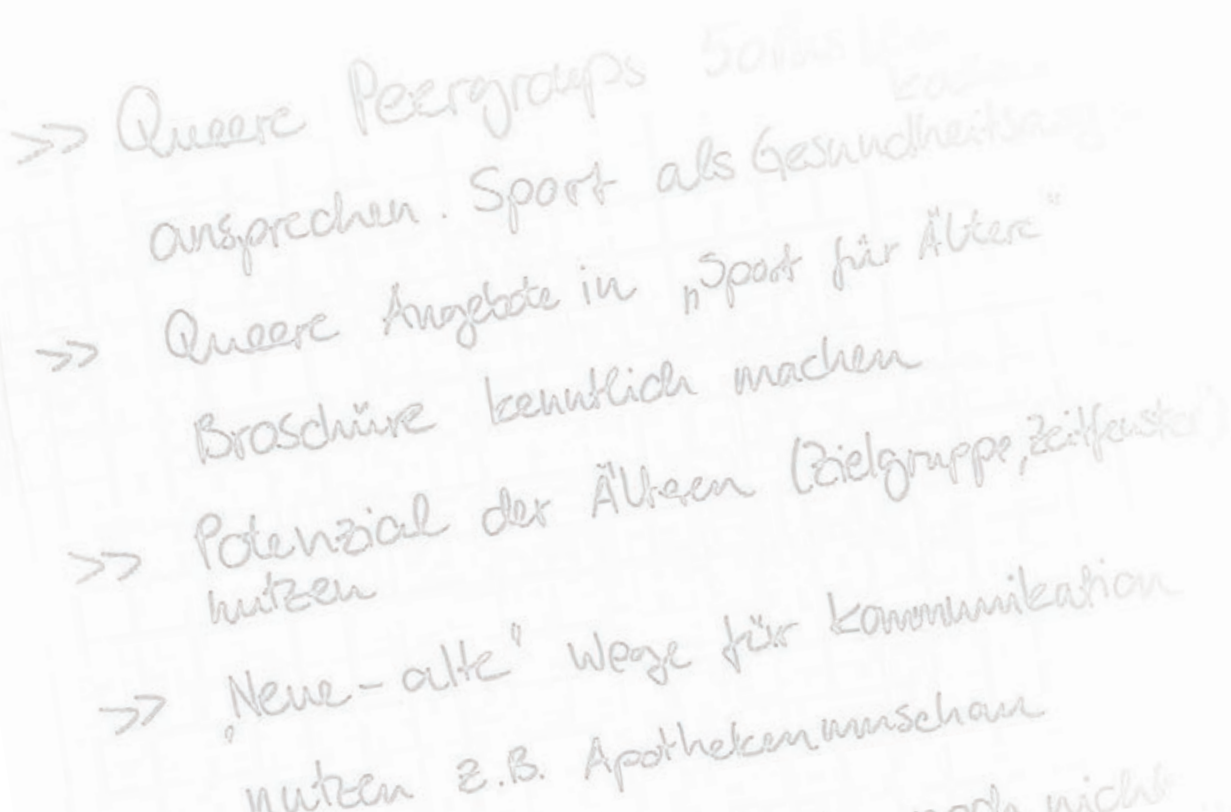 >> Queere Peergroups
ansprechen. Sport als
>> Queere Angebote in „Sport für Ältere"
Broschüre kenntlich machen
>> Potenzial der Älteren (Zielgruppe, Zeitfenster)
nutzen
>> „Neue-alte" Wege für Kommunikation
nutzen z.B. Apothekenumschau
noch nicht